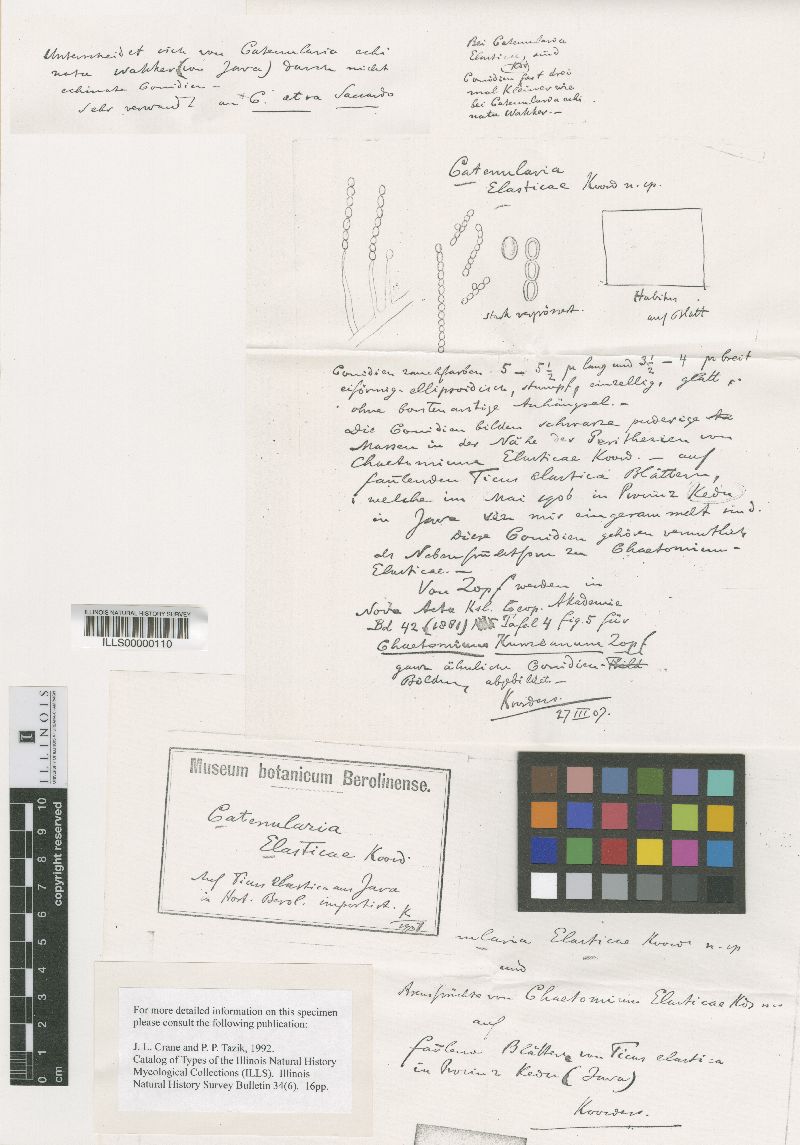 Unterscheidet sich von Catenularia echi
nata Wakker (von Java) durch nicht
echinate Conidien –
Sehr verwandt an C. atra Saccardo
Bei Catenularia
Elasticae sind
Kds
Conidien fast drei
mal kleiner wie
bei Catenularia echi
nata Wakker. –
Catenularia
Elasticae Koord n. sp.
stark vergrössert.
Habitus
auf Blatt
Conidien rauchfarben 5 – 5 1/2 µ lang und 3 1/2 – 4 µ breit
eiförmig-ellipsoidisch, stumpf, einzellig, glatt,
ohne borstenartige Anhängsel. –
Die Conidien bilden schwarze puderige
Massen in der Nähe der Perithezien von
Chaetomium Elasticae Koord. – auf
faulenden Ficus elastica Blättern,
welche im Mai 1906 in Provinz Kedu
in Java von mir eingesammelt sind.
Diese Conidien gehören vermutlich
als Nebenfruchtform zu Chaetomium
Elasticae. –
Von Zopf werden in
Nova Acta Ksl. Leop. Akademie
Bd 42 (1881) N 5 Tafel 4 fig. 5 für
Chaetomium Kunzeanum Zopf
ganz ähnliche Conidien-
Bildung abgebildet –
Koorders.
27 III 07.
ILLINOIS NATURAL HISTORY SURVEY
ILLS00000110
ILLINOIS
Museum botanicum Berolinense.
Catenularia
Elasticae Koord
Auf Ficus elastica aus Java
in Hort. Berol. importirt. K
cm 0 1 2 3 4 5 6 7 8 9 10
copyright reserved
nularia Elasticae Koord n. sp
und
Ascusfrüchte von Chaetomium Elasticae Kds
auf
faulend Blättern von Ficus elastica
in Provinz Kedu (Java)
Koorders.
For more detailed information on this specimen
please consult the following publication:
J. L. Crane and P. P. Tazik, 1992.
Catalog of Types of the Illinois Natural History
Mycological Collections (ILLS). Illinois
Natural History Survey Bulletin 34(6). 16pp.